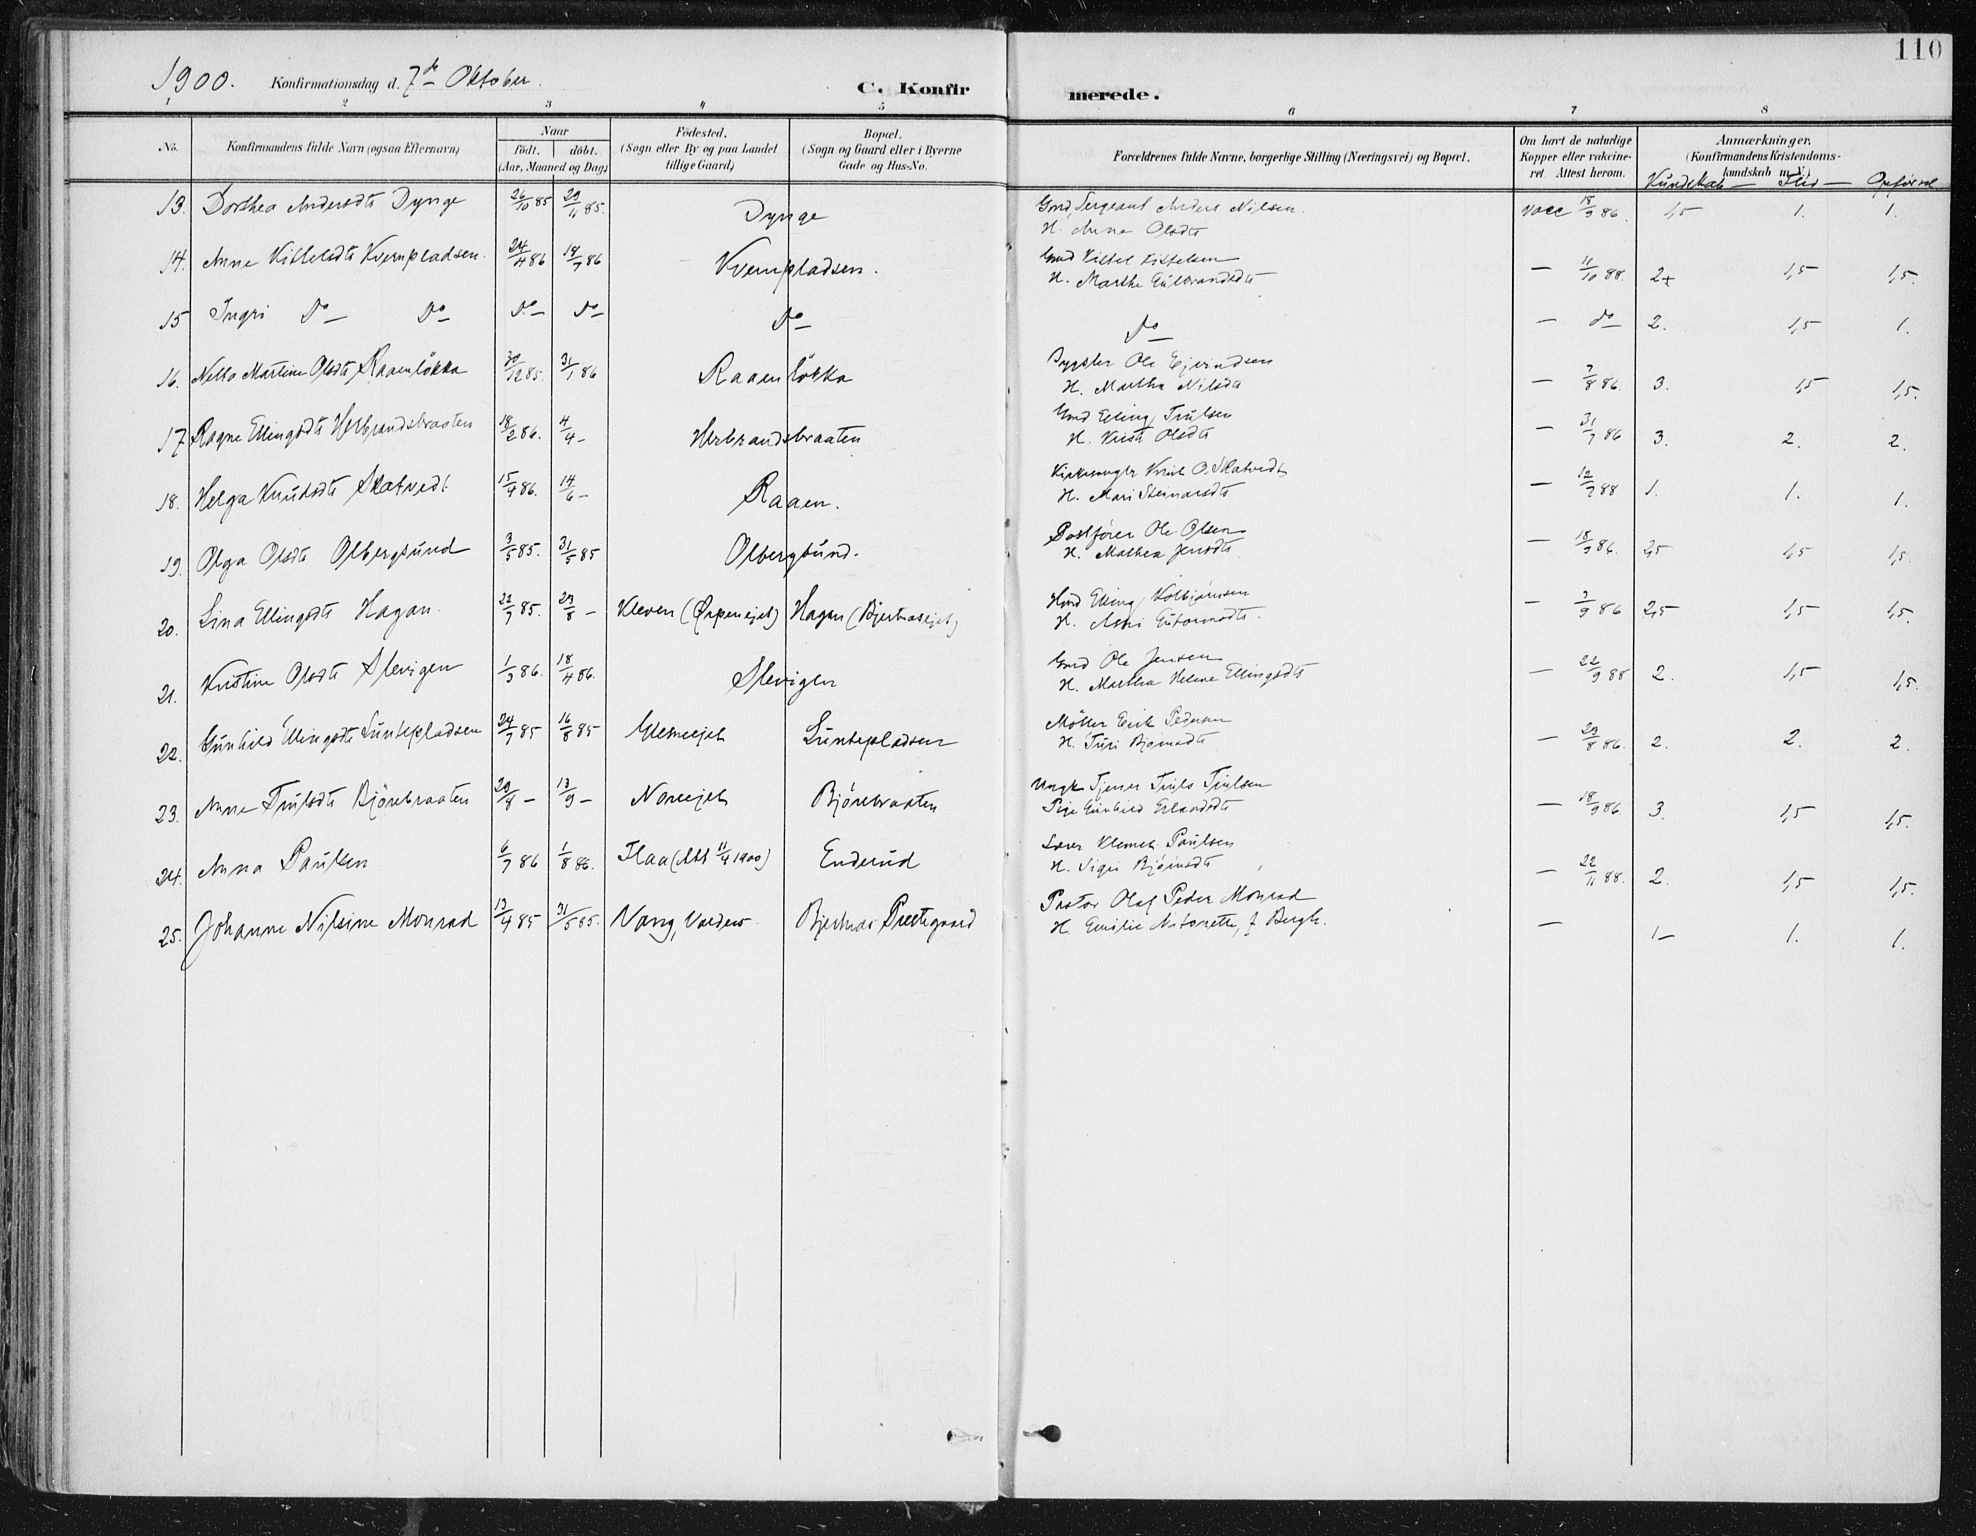 110
1900. Konfirmationsdag d. 7de Oktober.
C. Konfirmerede.
1 2 3 4 5 6 7 8
No. Konfirmandens fulde Navn (ogsaa Efternavn)
Naar
födt. döbt.
(Aar, Maaned og Dag)
Födested.
(Sogn eller By og paa Landet
tillige Gaard)
Bopæl.
(Sogn og Gaard eller i Byerne
Gade og Hus-No.
Forældrenes fulde Navne, borgerlige Stilling (Næringsvei) og Bopæl.
Om havt de naturlige
Kopper eller vakcine-
ret Attest herom.
Anmærkninger,
(Konfirmandens Kristendoms-
kundskab m. V.)
Kundskab — Flid — Opførsel
13. Dorthea Andersdtr Dynge 26/10 85 29/11 85. Dynge Gmd, Sergeant Anders Nilsen. vacc 18/9 86. 1,5 1. 1.
H. Anne Olsdtr
14. Anne Kittelsdtr Kvernpladsen. 24/4 86 18/7 86 Kvernpladsen. Gmd Kittel Kittelsen — 11/10 88. 2+ 1,5 1,5.
H. Marthe Gulbrandsdtr
15 Ingri Do — Do — Do — Do — Do — Do — — do — 2. 1,5 1.
16. Martine Olsdtr Raaenløkka 30/12 85. 31/1 86 Raaenløkka Ole Ejvindsen — 7/8 86. 3. 1,5 1,5.
H. Martha Nilsdtr
17 Ragne Ellingsdtr Herbrandsbraaten 18/2 86. 4/4 — Herbrandsbraaten Gmd Elling Trulsen — 31/7 86 3. 2. 2.
H. Kristi Olsdtr
18. Helga Knudsdtr Skatvedt 15/4 86. 14/6 — Raaen. Kirkesanger Knut O. Skatvedt — 12/7 88 1. 1. 1.
H. Mari Steinarsdtr
19. Olga Olsdtr Olbergsund 3/5 85. 31/5 85 Olbergsund. Postfører Ole Olsen — 18/9 86. 2,5 1,5 1,5.
H. Mathea Jensdtr
20. Lina Ellingsdtr Hagan. 22/7 85. 23/8 — Kleven (Ørpenejet) Hagan (Bjertnæsejet) Elling Kolbjørnsen — 3/9 86 2,5 1,5 1,5.
H. Astri Guttormsdtr.
21. Kristine Olsdtr Slevigen 1/3 86. 18/4 86. Slevigen Gmd Ole Jensen — 22/9 88 2. 1,5 1,5.
H. Martha Helene Ellingsdtr
22. Gunhild Ellingsdtr Suntepladsen 24/7 85 16/8 85 Glesneejet Suntepladsen Møller Erik Pedersen — 29/8 86. 2. 2. 2.
H. Turi Bjørnsdtr
23. Anne Trulsdtr Bjørebraaten 20/8 — 13/9 — Noreejet Bjørebraaten Ungk Tjener Truls Trulsen — 18/9 86. 3. 1,5 1,5.
Pige Gunhild Erlandsdtr
24. Anna Paulsen 6/7 86 1/8 86. Flaa (Att 11/4 1900) Enderud Lærer Klemet Paulsen — 22/11 88. 2. 1,5 1,5.
H. Sigri Bjørnsdtr
25. Johanne Nilsine Monrad 13/4 85 31/5 85. Vang, Valders. Bjertnæs Prestegaard Pastor Olaf Peder Monrad — 1— 1. 1.
H. Emilie Antonette, f Bergh.